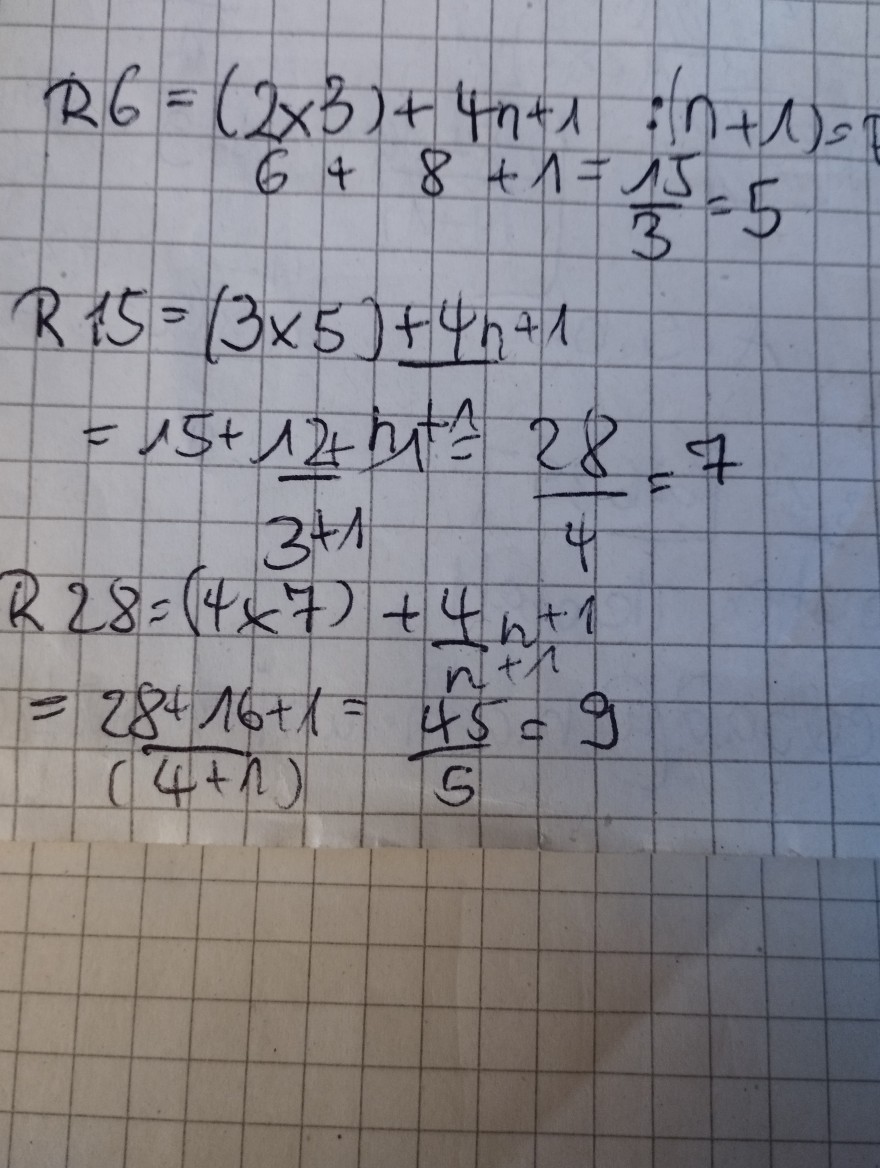 R6 = (2x3) + 4n+1 :(n+1)=
6 + 8 +1 = 15/3 = 5
R 15 = (3x5) +4n+1
= 15+12+ +1 = 28/4 = 7
3+1
R 28 = (4x7) + 4n+1
n+1
= 28+16+1 = 45/5 = 9
(4+1)